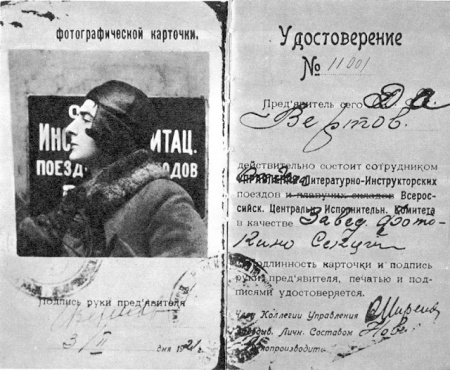 фотографической карточки.
ИНС ИТАЦ.
ПОЕЗД ОДОВ
Подпись руки пред'явителя
3 VII дня 1921 г.
Удостоверение
№ 11001
Пред'явитель сего Д. А.
Вертов.
действительно состоит сотрудником
Литературно-Инструкторских
поездов и плавучих складов Всерос-
сийск. Центральн. Исполнительн. Комитета
в качестве Завед. Фото-
Кино Секции
Подлинность карточки и подпись
руки пред'явителя, печатью и под-
писями удостоверяется.
Член Коллегии Управления
Заведыв. Личн. Составом
Делопроизводитель